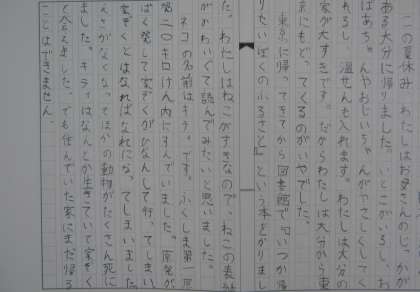 この夏休み、わたしはお母さんのじっか
ある大分に帰りました。いとこがいるし、お
ばあちゃんやおじいちゃんがやさしくしてく
れるし、温せんも入れます。わたしは大分の
家が大すきです。だからわたしは大分から東
京にもどってくるのがいやでした。
東京に帰ってきてから図書館で「いつか帰
りたいぼくのふるさと」という本をかりまし
た。わたしはねこがすきなので、ねこの表紙
がかわいくて読んでみたいと思いました。
ネコの名前はキティです。ふくしま第一原
発二〇キロけん内にすんでいました。原発が
ばく発して家ぞくがひなんして行ってしまい、
家ぞくとはなればなれになってしまいました
えさがなくなってほかの動物がたくさん死に
ました。キティはなんとか生きていて家ぞく
と会えました。でも住んでいた家にまだ帰る
ことはできません。